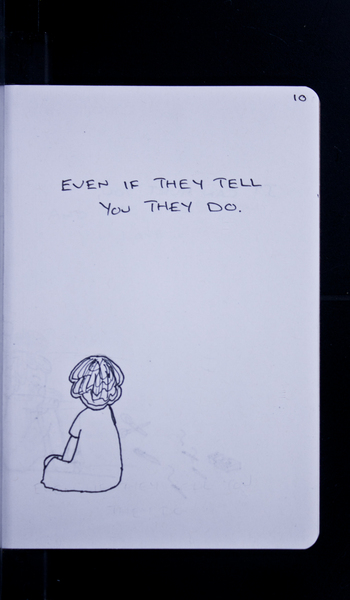 10
EVEN IF THEY TELL
YOU THEY DO.